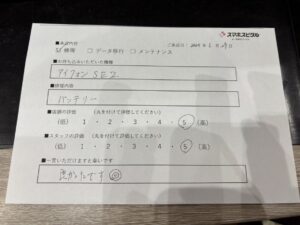 スマホスピタル
■承認内容
ご来店日: 2024年 月 日
☑修理 □データ移行 □メンテナンス
■お持ち込みいただいた機種
アイフォン SE2
■修理内容
バッテリー
■店舗の評価 (丸を付けて評価してください)
(低) 1 ・ 2 ・ 3 ・ 4 ・ 5 (高)
■スタッフの評価 (丸を付けて評価してください)
(低) 1 ・ 2 ・ 3 ・ 4 ・ 5 (高)
■一言いただけますと幸いです
良かったです